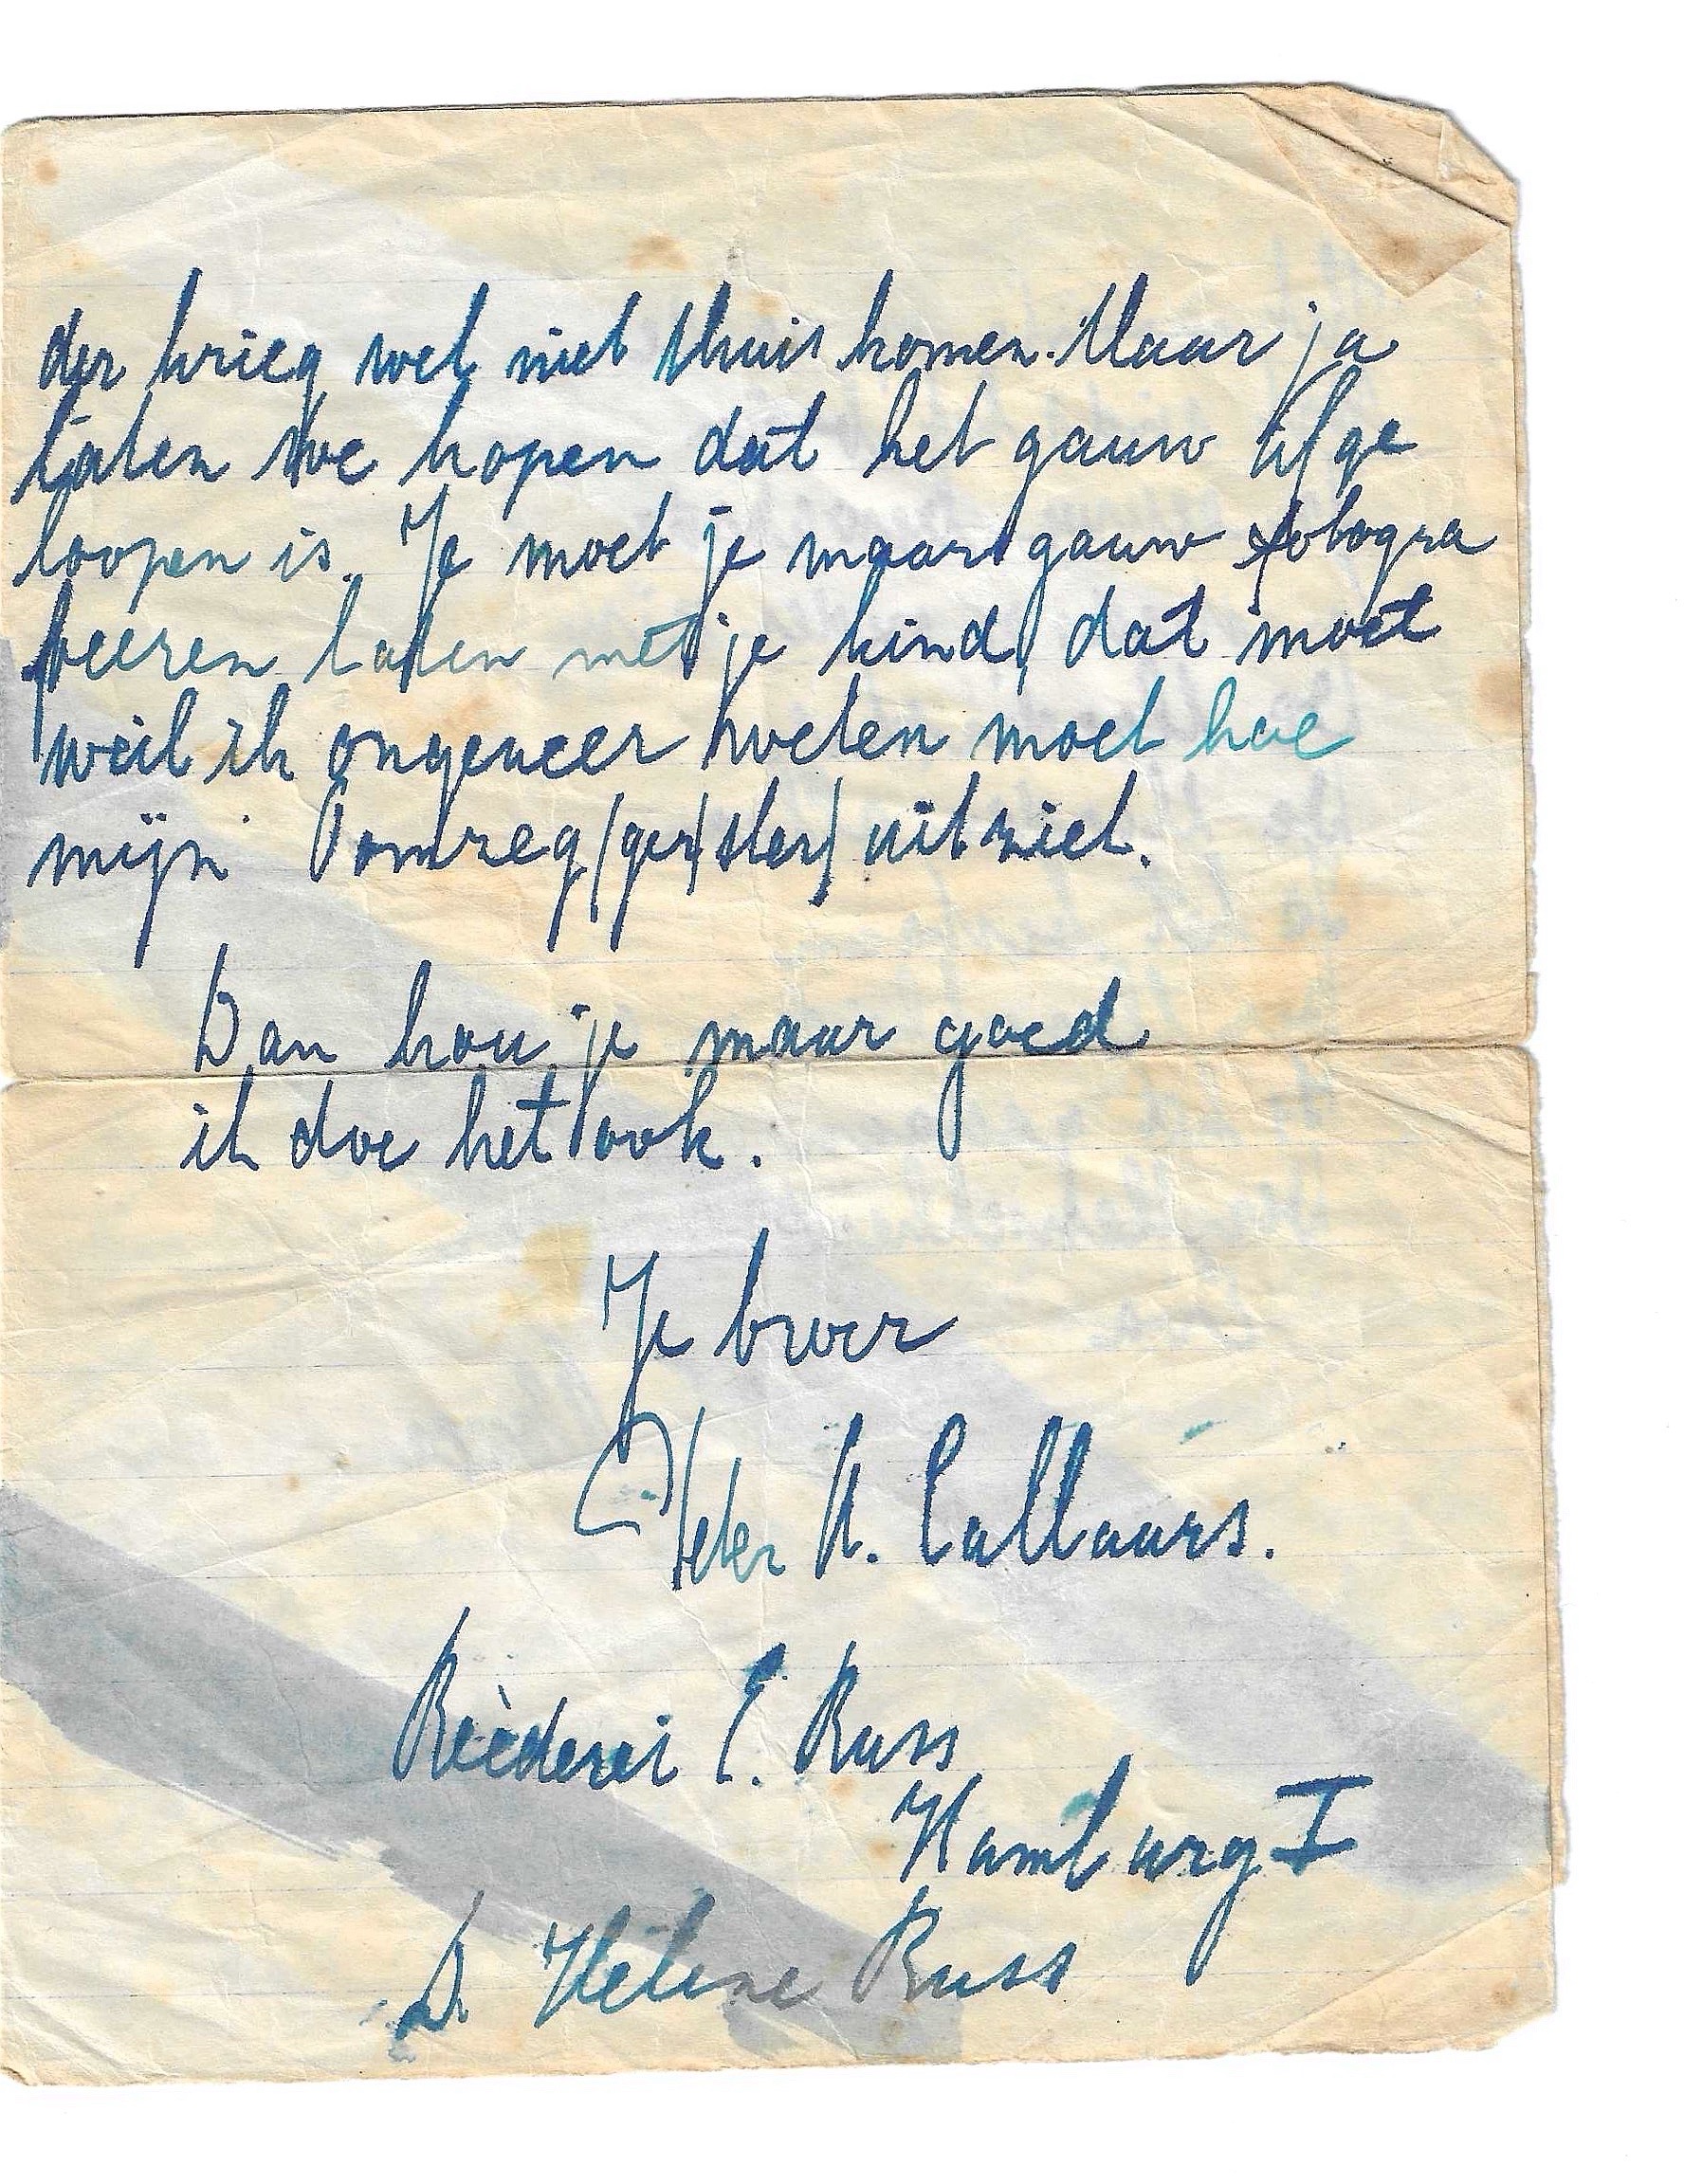 der krieg wel niet thuis komen. Maar ja
laten we hopen dat het gauw afge
loopen is. Je moet je maar gauw fotogra
feeren laten met je kind, dat moet
weil ik ongeveer weten moet hoe
mijn Oomzeg/ger/ster/ uitziet.
Dan hou je maar goed
ik doe het ook.
Je broer
Peter N. Callaars.
Reèderei E. Russ
Hamburg I
D. Helene Russ